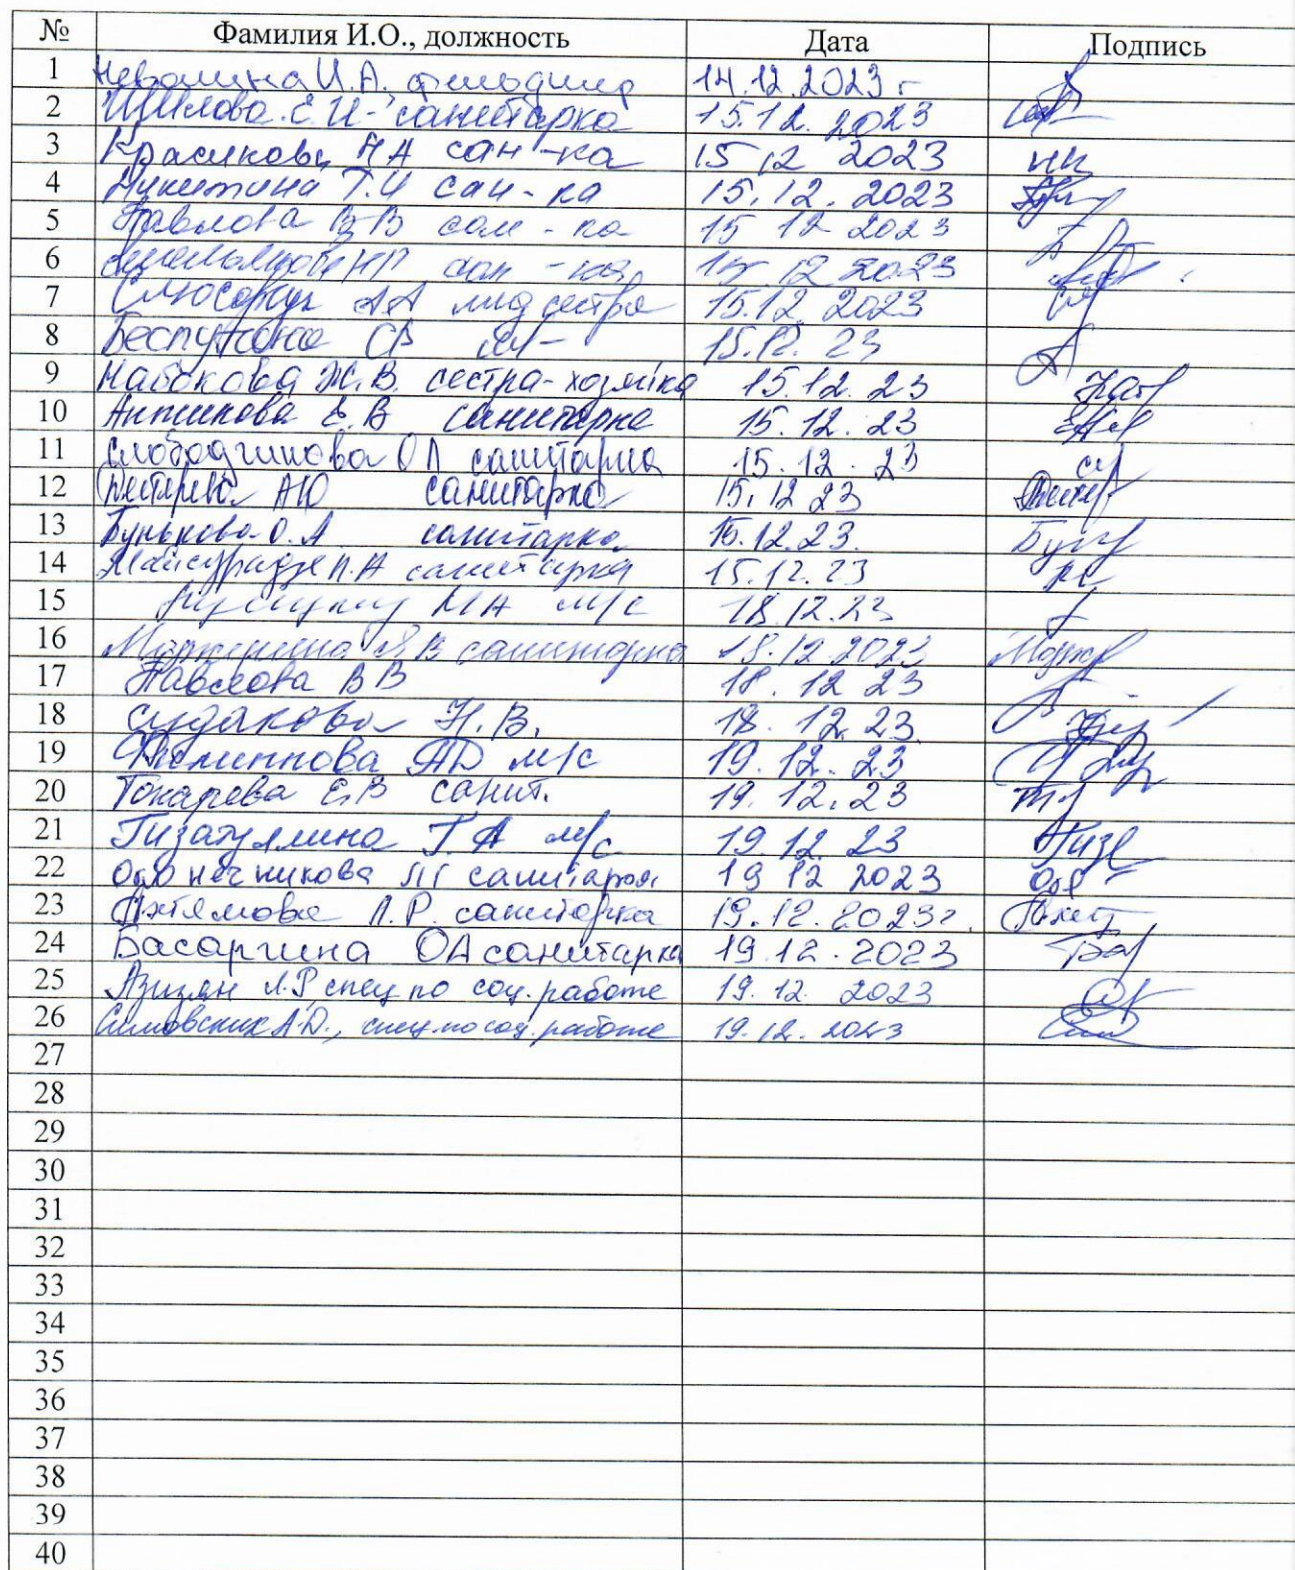 № Фамилия И.О., должность Дата Подпись
1 Неволина И.А. 14.12.2023 г
2 Шилова Е.И - санитарка 15.12.2023
3 Красикова НА сан-ка 15 12 2023
4 Никитина Т.И сан-ка 15.12.2023
5 Павлова ВВ сан-ка 15 12 2023
6 сан-ка 15 12 2023
7 АА мед сестра 15.12.2023
8 СВ 15.12.23
9 Набокова Ж.В. сестра-хозяйка 15.12.23
10 Антипова Е.В санитарка 15.12.23
11 Слободчикова ОЛ санитарка 15.12.23
12 АЮ санитарка 15.12 23
13 Бунькова О.А санитарка 15.12.23.
14 Майсурадзе Н.А санитарка 15.12.23
15 МА м/с 18.12.23
16 санитарка 18.12.2023
17 Павлова ВВ 18.12 23
18 Судакова Н.В. 18.12.23
19 Филиппова АД м/с 19.12.23
20 Токарева Е.В санит. 19.12.23
21 Гизатулина Г.А м/с 19 12 23
22 санитарка 19 12 2023
23 Ахтямова Л.Р. санитарка 19.12.2023г.
24 Басаргина ОА санитарка 19.12.2023
25 Азизян Л.Р, спец по соц. работе 19.12.2023
26 А.Ю., спец. по соц. работе 19.12.2023
27
28
29
30
31
32
33
34
35
36
37
38
39
40